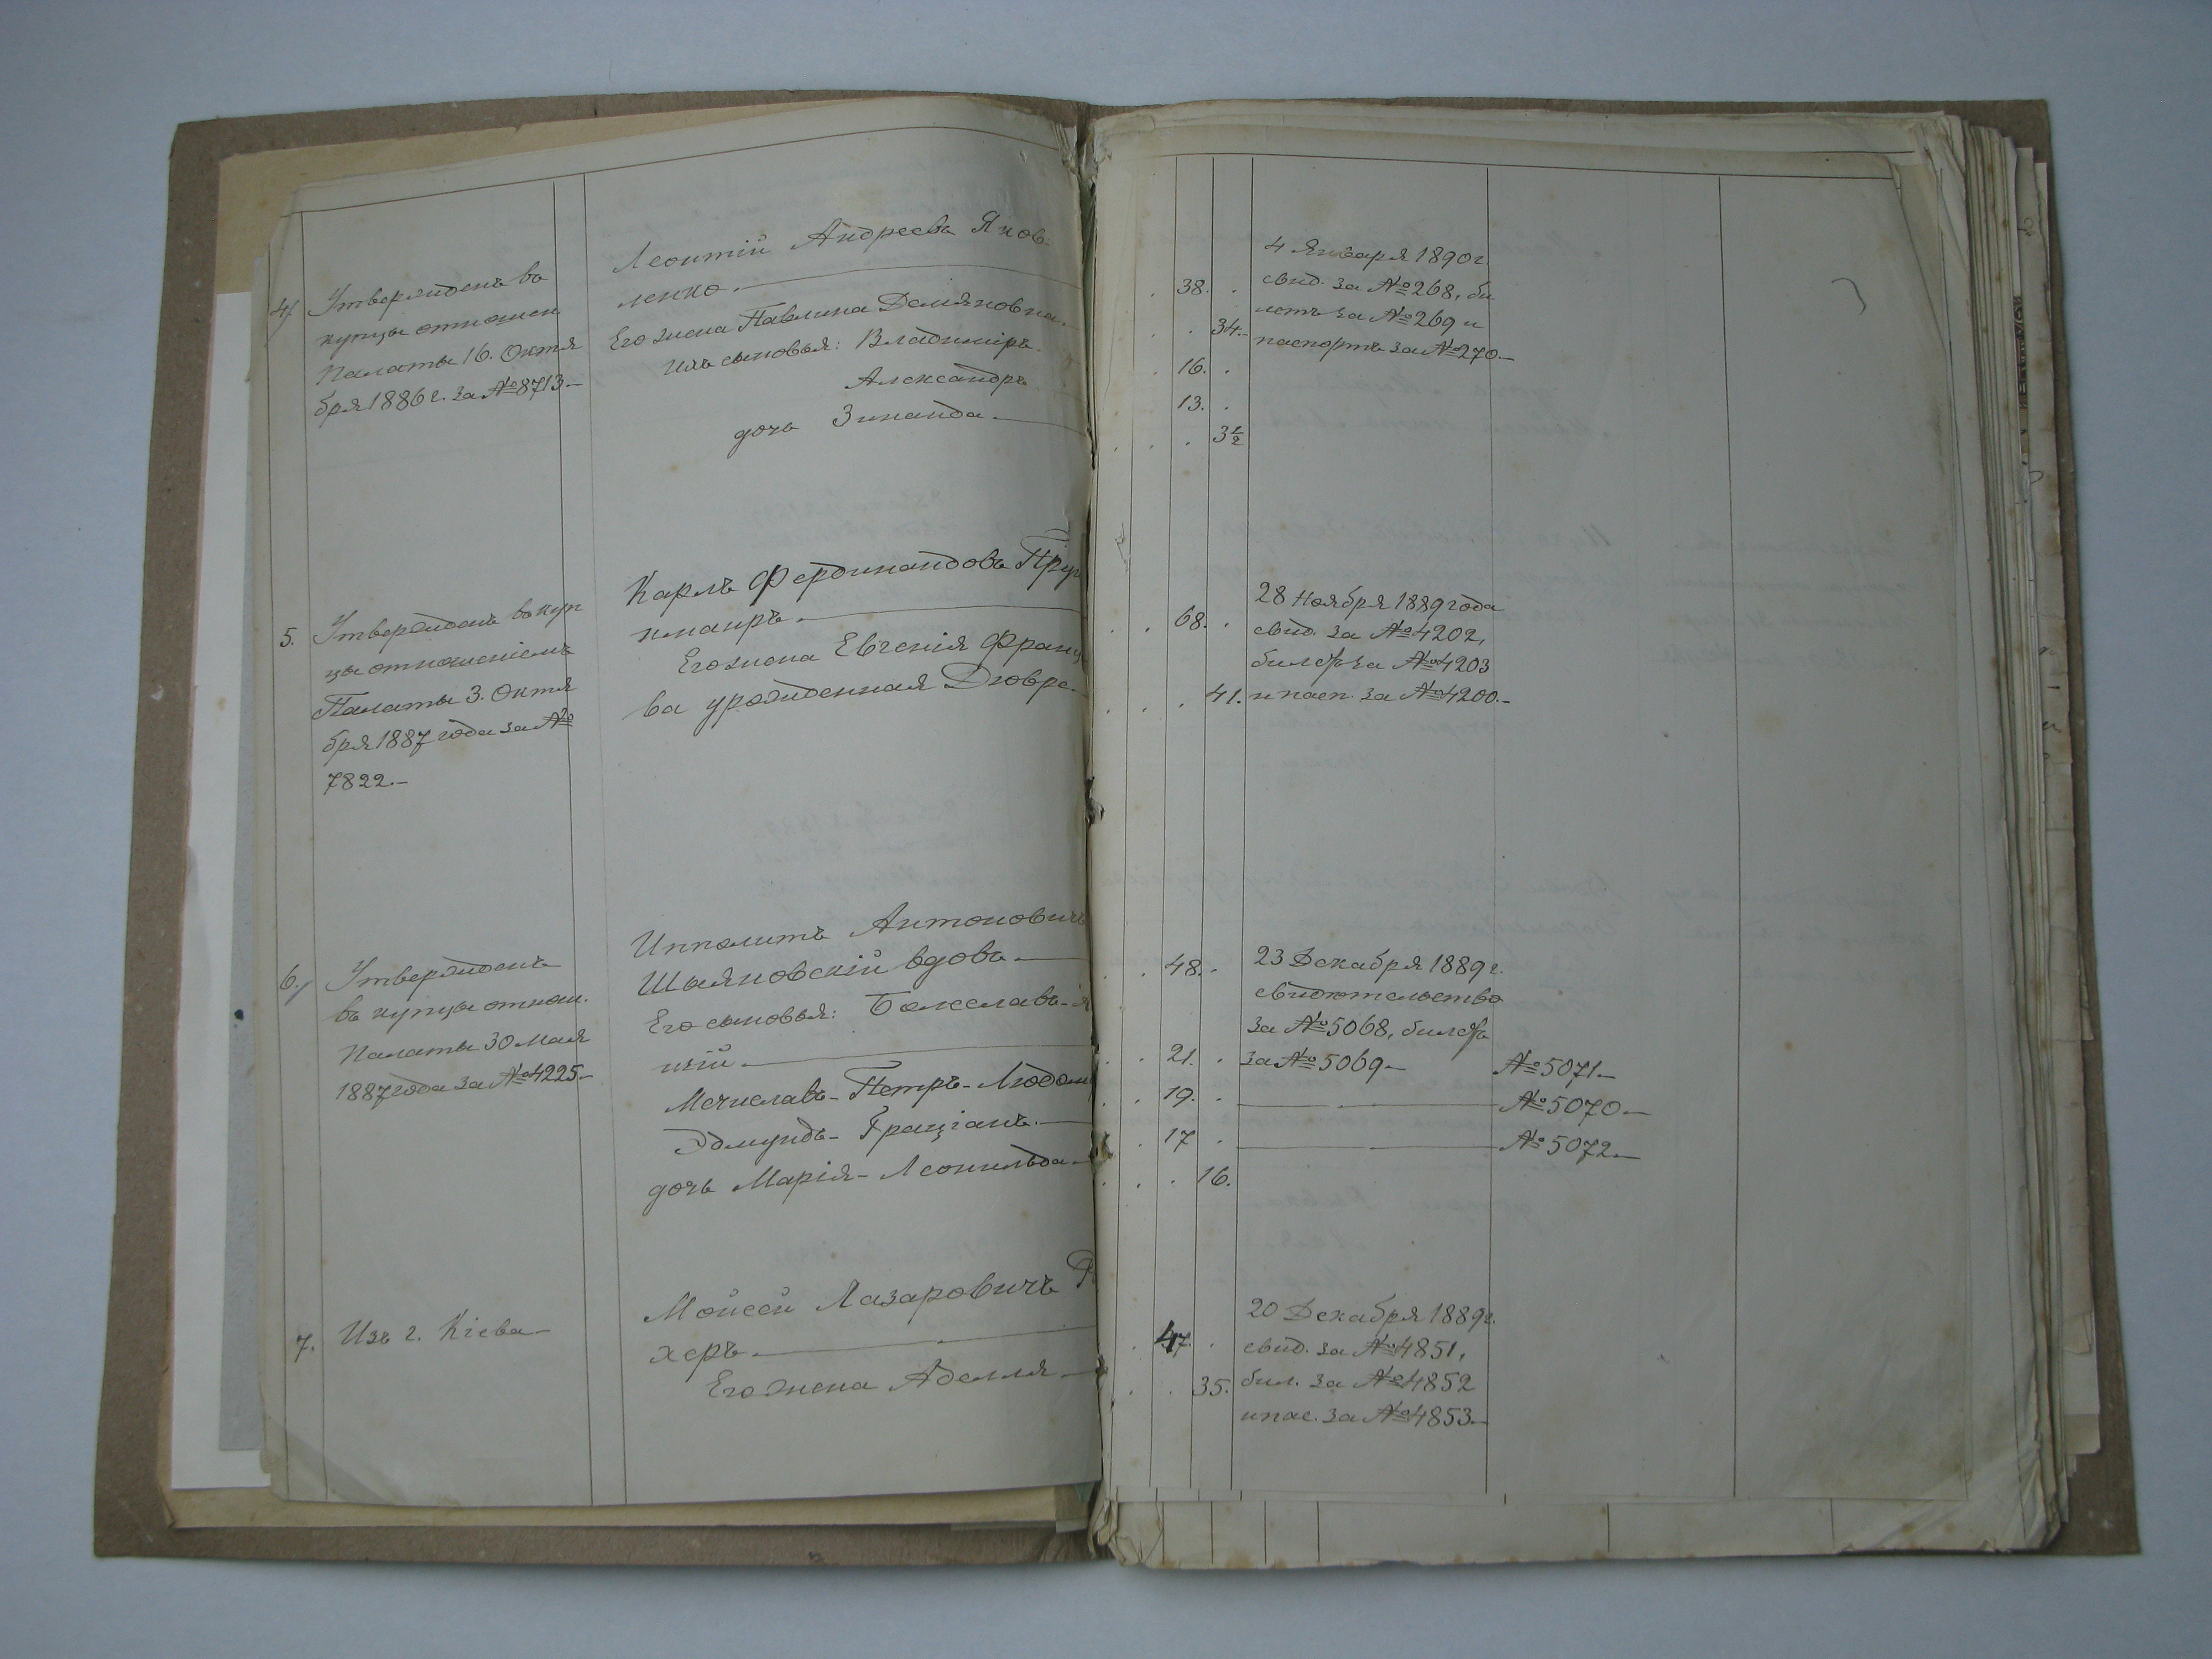 4/
Утвержденъ въ
купцы отношен.
Палаты 16. Октя
бря 1886 г. за № 8713.—
Леонтій Андреевъ Яков-
ленко.
Его жена Павлина Демяновна.
Ихъ сыновья: Владиміръ.
Александръ
дочь Зинаида
38.
34.
16.
13.
3½
4 Января 1890 г.
свид. за № 268, би
летъ за № 269 и
паспортъ за № 270.—
5.
Утвержденъ въ куп
цы отношеніемъ
Палаты 3. Октя
бря 1887 года за №
7822.—
Карлъ Фердинандовъ
Его жена Евгенія
ва урожденная
68.
41.
28 Ноября 1889 года
свид. за № 4202,
билетъ за № 4203
и пасп. за № 4200.—
6./
Утвержденъ
въ купцы отнош.
Палаты 30 Мая
1887 года за № 4225.—
Ипполитъ Антоновичъ
вдовъ
Его сыновья: Болеславъ-
Мечиславъ-Петръ-
Эдмундъ-Граціанъ.
дочь Марія-Леонильда
48.
21.
19.
17
16.
23 Декабря 1889 г.
свидетельство
за № 5068, билетъ
за № 5069—
№ 5071—
№ 5070.—
№ 5072.—
7.
Изъ г. Кіева—
Мойсей Лазаровичъ
херъ.
Его жена Аделля
47.
35.
20 Декабря 1889 г.
свид. за № 4851,
бил. за № 4852
и пас. за № 4853.—